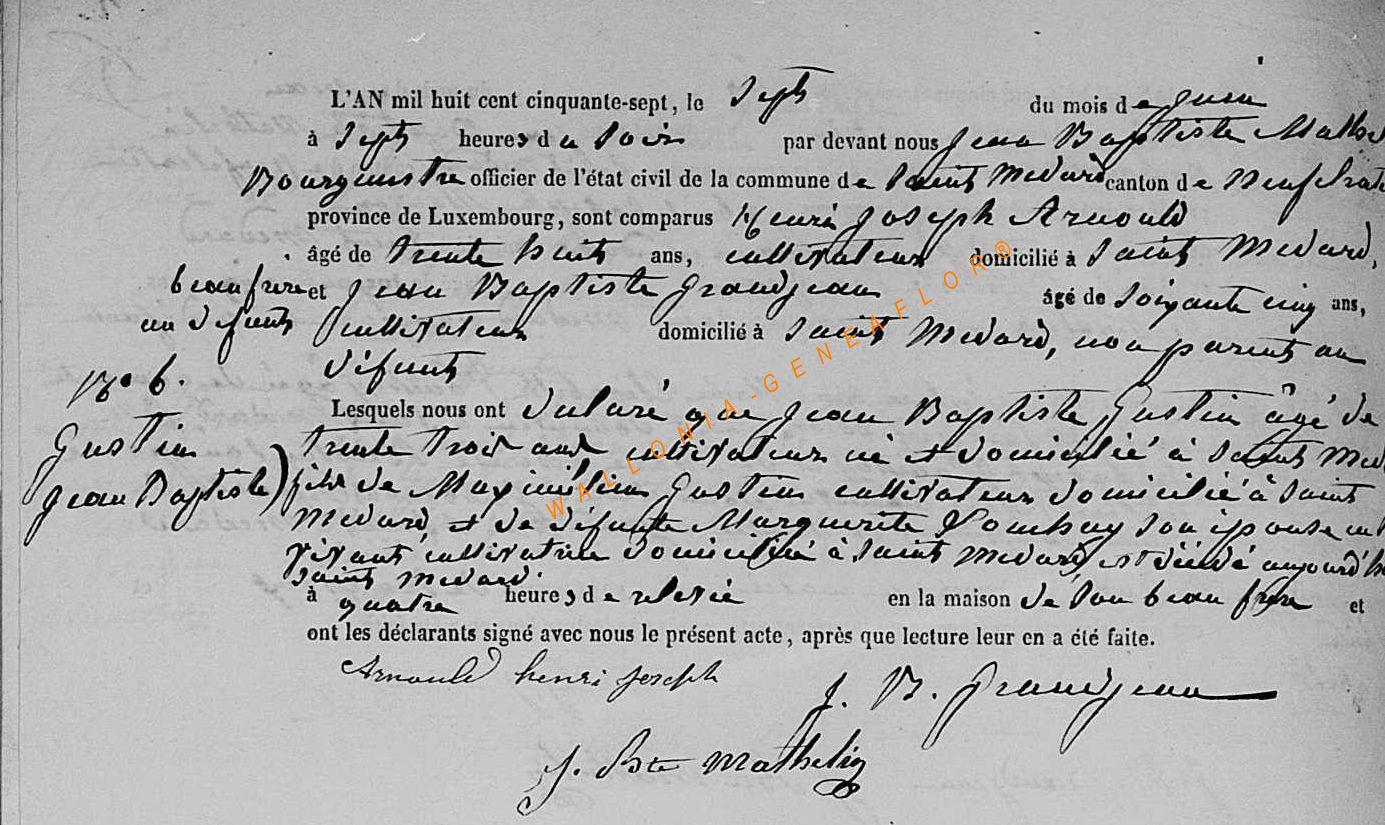 L'AN mil huit cent cinquante-sept, le Sept du mois de juin
à Sept heures du Soir par devant nous Jean Baptiste Mathe
Bourgmestre officier de l'état civil de la commune de Saint Medard canton de Neufchate
province de Luxembourg, sont comparus Henri Joseph Arnould
âgé de trente huit ans, cultivateur domicilié à Saint Medard,
beau frere et Jean Baptiste Grandjean âgé de Soixante cinq ans,
au défunt cultivateur domicilié à Saint Medard, non parent au
défunt
N° 6.
Lesquels nous ont déclaré que Jean Baptiste Gustin âgé de
Gustin trente trois ans cultivateur né et domicilié à Saint Med
Jean Baptiste) fils de Maximilien Gustin cultivateur domicilié à Saint
Medard, et de défunte Marguerite son épouse en
vivant cultivatrice domiciliée à Saint Medard, est décédé aujourd'h
Saint Medard.
à quatre heures de relevée en la maison de Son beau frere et
ont les déclarants signé avec nous le présent acte, après que lecture leur en a été faite.
Arnould henri joseph
J. B. Grandjean
J. Bte Mathelin
WALLONIA-GENEAFLOR®